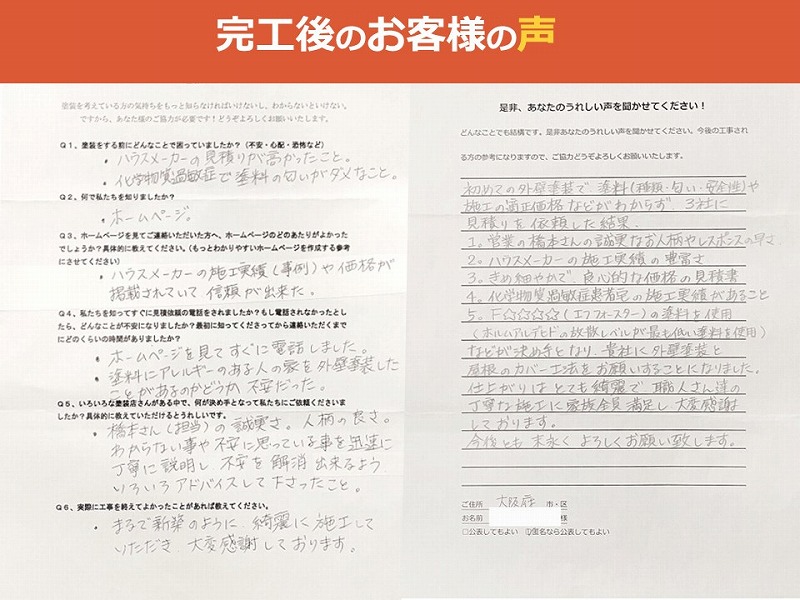 完工後のお客様の声
塗装を考えている方の気持ちをもっと知らなければいけないし、わからないといけない。
ですから、あなた様のご協力が必要です！どうぞよろしくお願いします。
Q1、塗装をする前にどんなことで困っていましたか？（不安・心配・恐怖など）
・ハウスメーカーの見積りが高かったこと。
・化学物質過敏症で塗料の匂いがダメなこと。
Q2、何で私たちを知りましたか？
・ホームページ。
Q3、ホームページを見てご連絡いただいた方へ、ホームページのどのあたりがよかった
でしょうか？具体的に教えてください。（もっとわかりやすいホームページを作成する参考
にさせてください）
・ハウスメーカーの施工実績（事例）や価格が
掲載されていて信頼が出来た。
Q4、私たちを知ってすぐに見積依頼の電話をされましたか？もし電話されなかったとし
たら、どんなことが不安になりましたか？最初に知ってくださってから連絡いただくまで
にどのくらいの時間がありましたか？
・ホームページを見てすぐに電話しました。
・塗料にアレルギーのある人の家を外壁塗装した
ことがあるのかどうか、不安だった。
Q5、いろいろな塗装店さんがある中で、何が決め手となって私たちにご依頼くださいま
したか？具体的に教えていただけるとうれしいです。
・橋本さん（担当）の誠実さ。人柄の良さ。
わからない事や不安に思っている事を迅速に
丁寧に説明し、不安を解消出来るよう
いろいろアドバイスして下さったこと。
Q6、実際に工事を終えてよかったことがあれば教えてください。
・まるで新築のように、綺麗に施工して
いただき、大変感謝しております。
是非、あなたのうれしい声を聞かせてください！
どんなことでも結構です。是非あなたのうれしい声を聞かせてください。今後の工事され
る方の参考になりますので、ご協力どうぞよろしくお願いいたします。
初めての外壁塗装で、塗料（種類・匂い・安全性）や
施工の適正価格などがわからず、3社に
見積りを依頼した結果、
1。営業の橋本さんの誠実なお人柄やレスポンスの早さ
2。ハウスメーカーの施工実績の豊富さ
3。きめ細やかで、良心的な価格の見積書
4。化学物質過敏症患者宅の施工実績があること
5。F☆☆☆☆（エフフォースター）の塗料を使用
（ホルムアルデヒドの放散レベルが最も低い塗料を使用）
などが決め手となり、貴社に外壁塗装と
屋根のカバー工法をお願いすることになりました。
仕上がりはとても綺麗で、職人さん達の
丁寧な施工に家族全員満足し、大変感謝
しております。
今後とも末永くよろしくお願い致します。
ご住所 大阪府 市・区
お名前 様
□公表してもよい ☑匿名なら公表してもよい